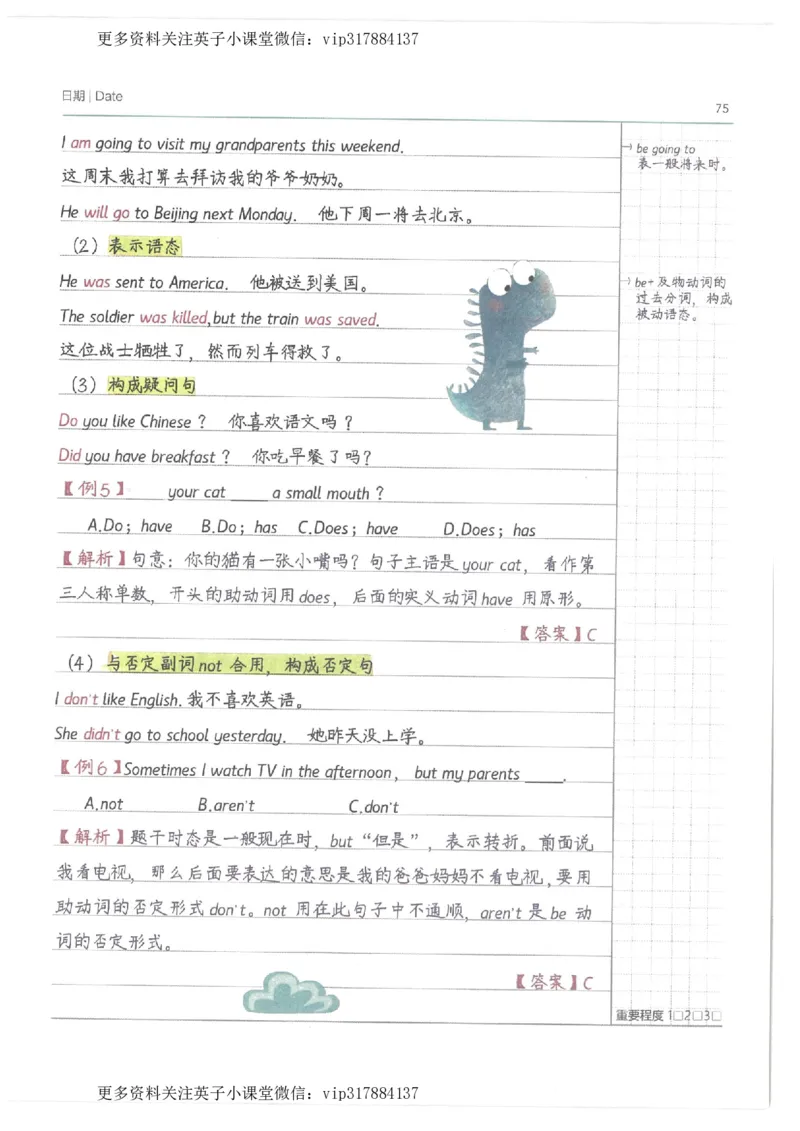 更多资料关注英子小课堂微信：vip317884137
日期 | Date
75
I am going to visit my grandparents this weekend.
这周末我打算去拜访我的爷爷奶奶。
He will go to Beijing next Monday. 他下周一将去北京。
（2）表示语态
He was sent to America. 他被送到美国。
The soldier was killed,but the train was saved.
这位战士牺牲了，然而列车得救了。
（3）构成疑问句
Do you like Chinese？ 你喜欢语文吗？
Did you have breakfast？ 你吃早餐了吗？
【例5】 your cat ____ a small mouth？
A.Do；have B.Do；has C.Does；have D.Does；has
【解析】句意：你的猫有一张小嘴吗？句子主语是 your cat，看作第
三人称单数，开头的助动词用 does，后面的实义动词 have 用原形。
【答案】C
（4）与否定副词 not 合用，构成否定句
I don't like English. 我不喜欢英语。
She didn't go to school yesterday. 她昨天没上学。
【例6】Sometimes I watch TV in the afternoon，but my parents ____.
A.not B.aren't C.don't
【解析】题干时态是一般现在时，but“但是”，表示转折。前面说
我看电视，那么后面要表达的意思是我的爸爸妈妈不看电视，要用
助动词的否定形式 don't。not 用在此句子中不通顺，aren't 是 be 动
词的否定形式。
【答案】C
→ be going to
表一般将来时。
→ be+及物动词的
过去分词，构成
被动语态。
重要程度 1□2□3□
更多资料关注英子小课堂微信：vip317884137